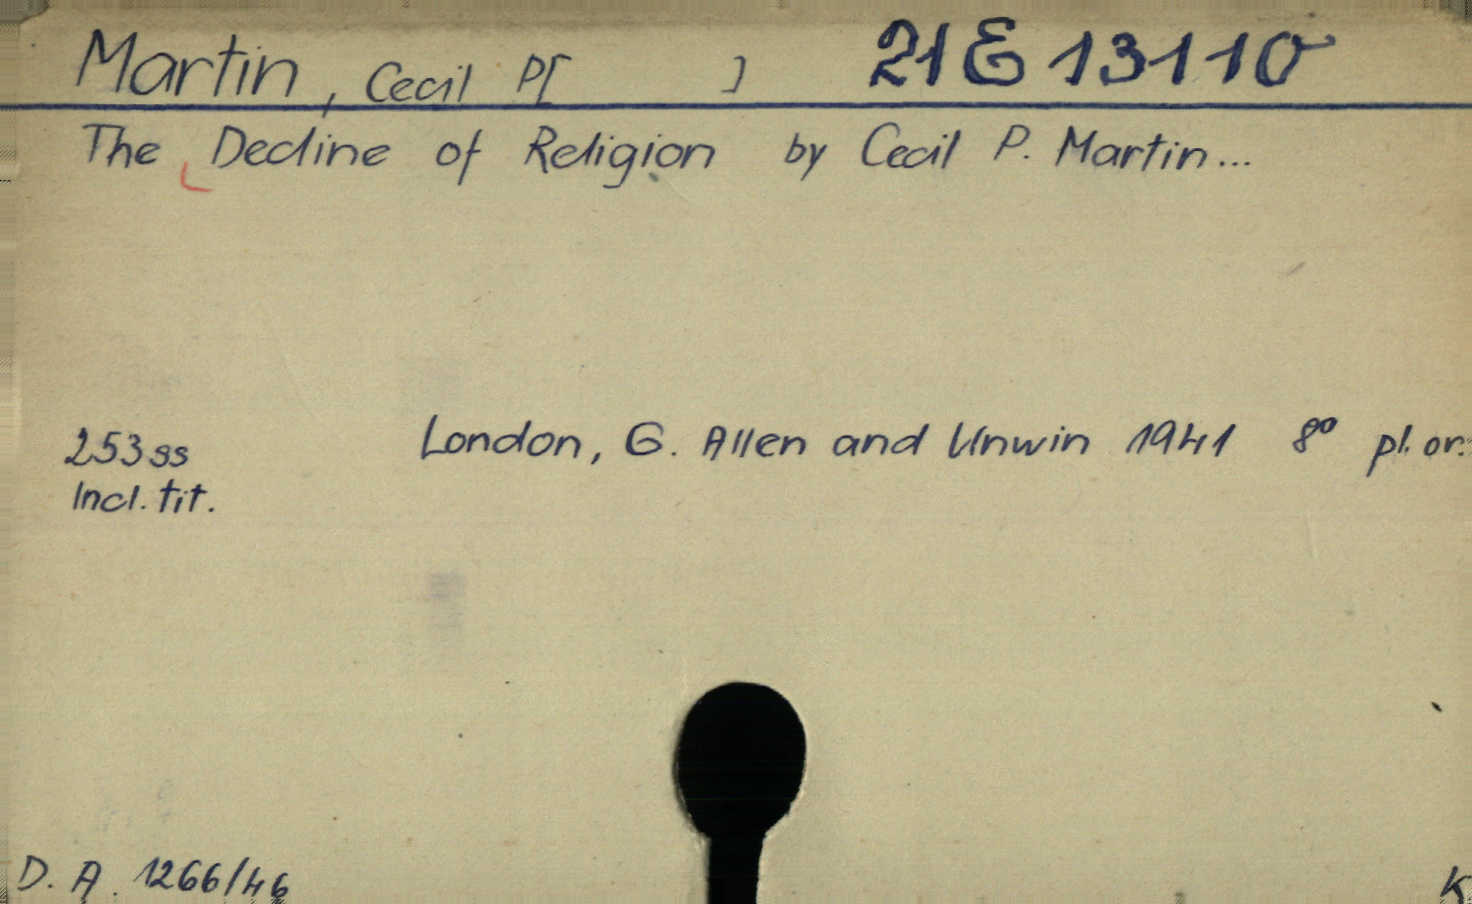 Martin, Cecil P[ ] 21 E 13110
The Decline of Religion by Cecil P. Martin...
253 ss London, G. Allen and Unwin 1941 8° pl. or.
Incl. tit.
D. A. 1266/46 K